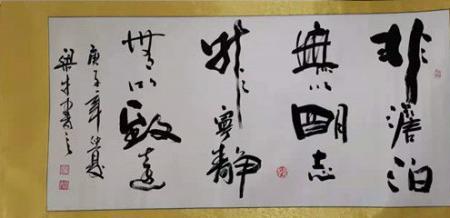 非澹泊
無以明志
非寧靜
無以致遠
庚子年仲夏
梁
書